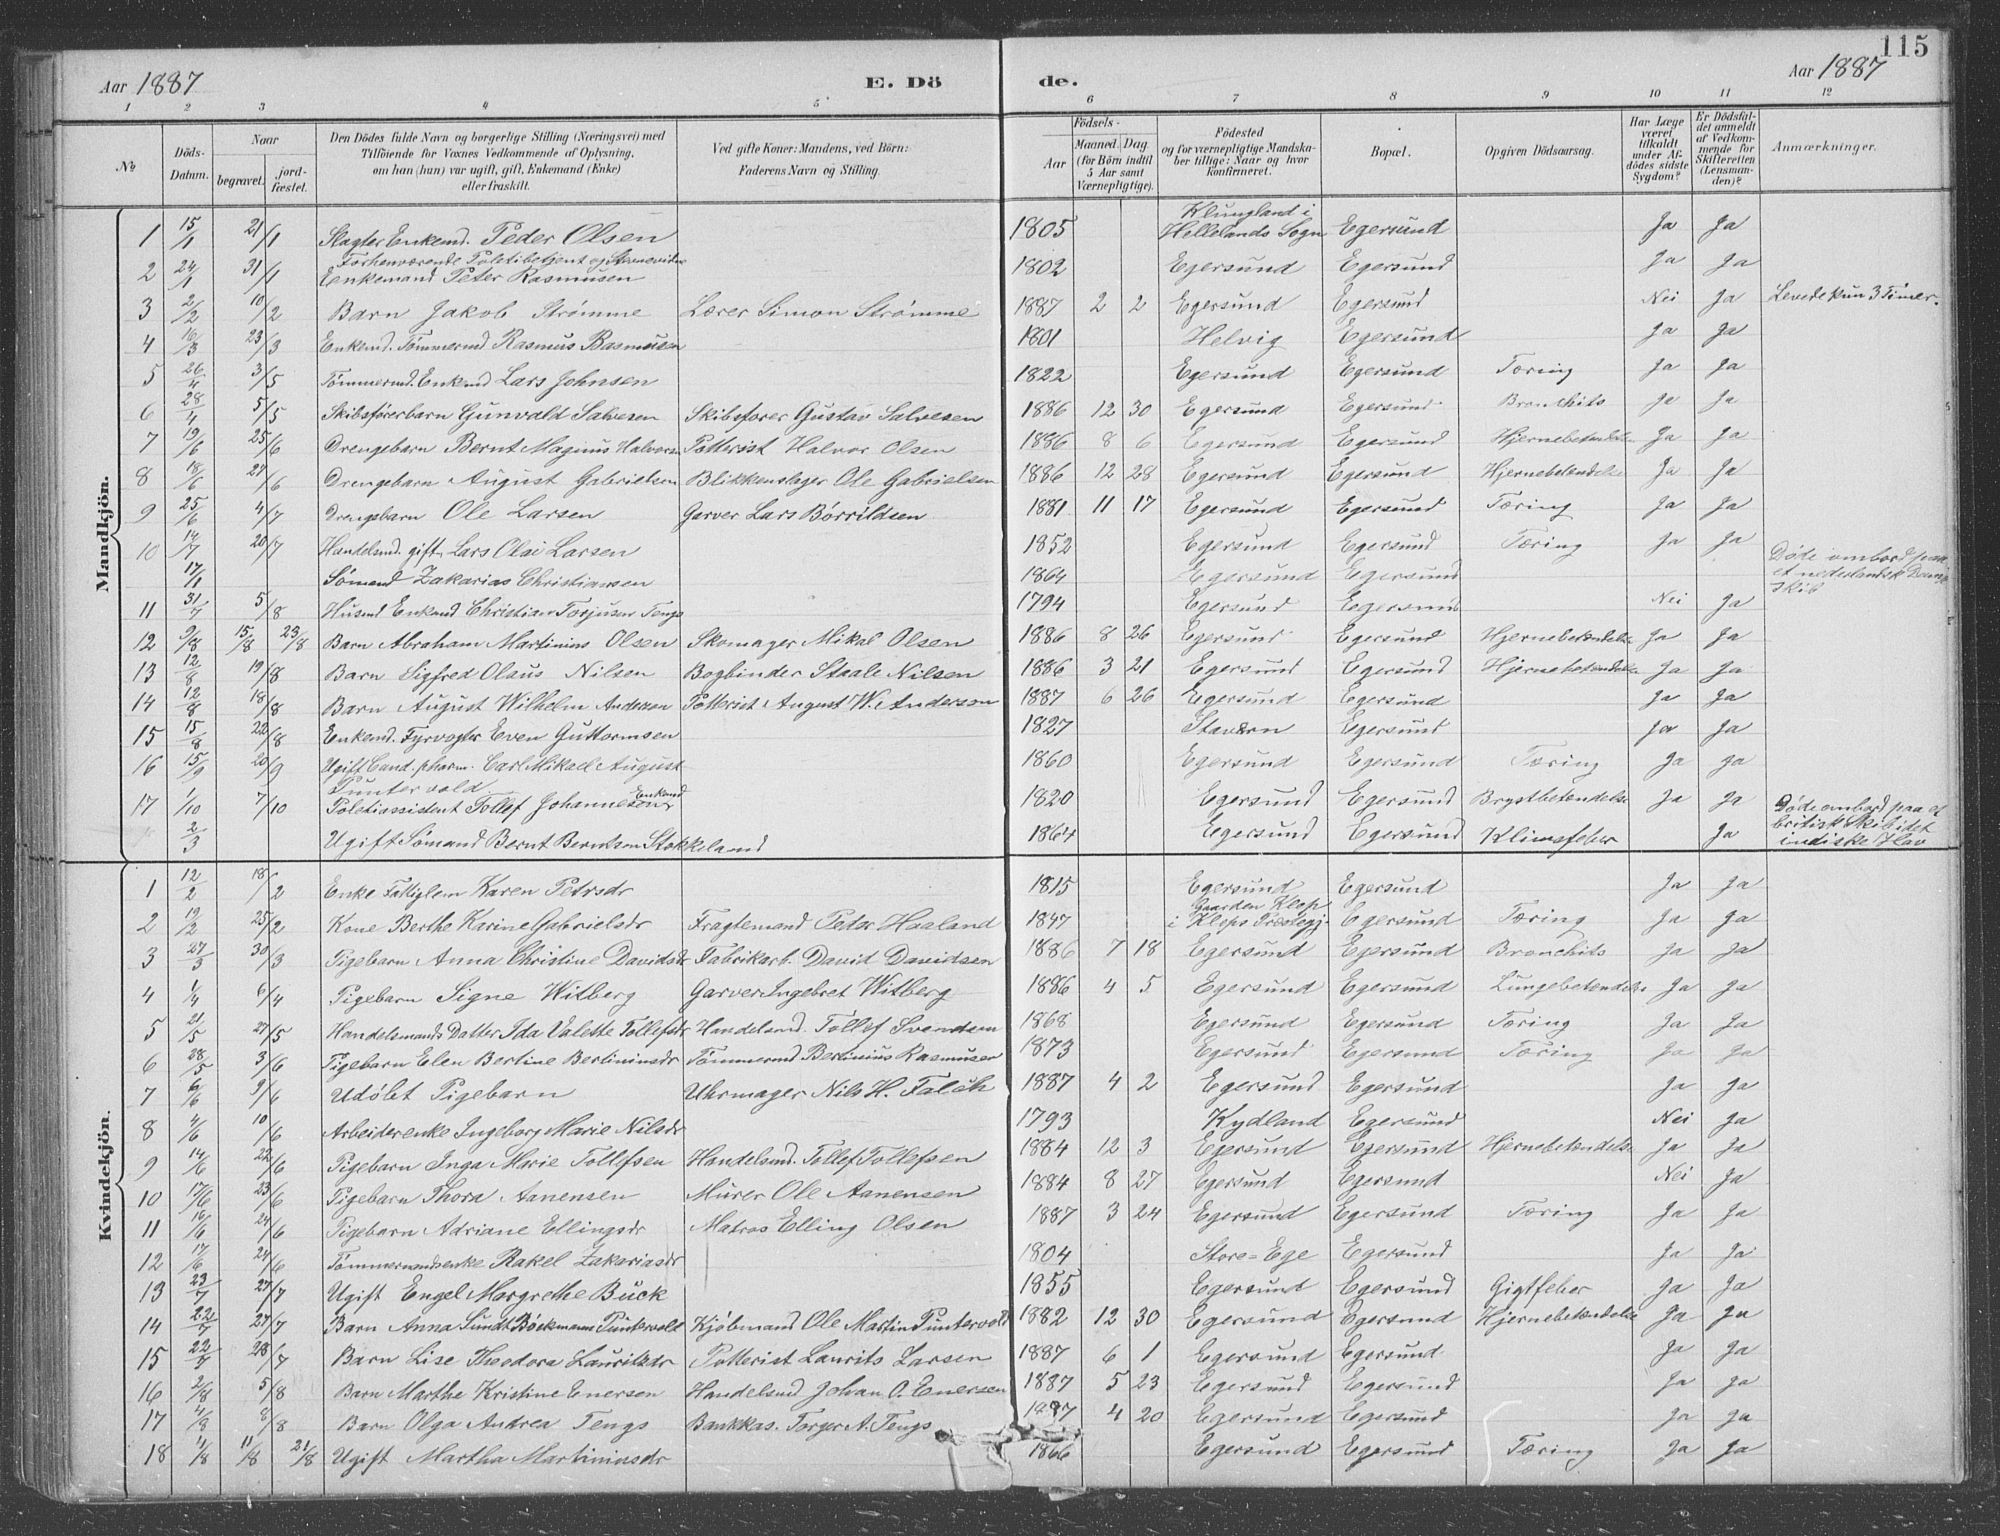 115
Aar 1887 E. Dö de. Aar 1887
1 2 3 4 5 6 7 8 9 10 11 12
No Döds-Datum. Naar begravet. jordfæstet. Den Dödes fulde Navn og borgerlige Stilling (Næringsvei) med Tilföiende for Voxnes Vedkommende af Oplysning, om han (hun) var ugift, gift, Enkemand (Enke) eller fraskilt. Ved gifte Koner: Mandens, ved Börn: Faderens Navn og Stilling. Födsels- Aar Maaned. Dag (for Börn indtil 5 Aar samt Værnepligtige). Födested og for værnepligtige Mandskaber tillige: Naar og hvor konfirmeret. Bopæl. Opgiven Dödsaarsag. Har Læge været tilkaldt under Afdödes sidste Sygdom? Er Dödsfaldet anmeldt af Vedkommende for Skifteretten (Lensmanden)? Anmærkninger.
Mandkjön.
1 15/1 21/1 Slagter Enkemd. Peder Olsen 1805 Klungland i Hellelands Sogn Egersund Ja Ja
2 24/1 31/1 Forhenværende Politibetjent og Enkemand Peter Rasmusen 1802 Egersund Egersund Ja Ja
3 2/2 10/2 Barn Jakob Strømme Lærer Simon Strømme 1887 2 2 Egersund Egersund Nei Ja Levede kun 3 Timer.
4 16/3 23/3 Enkemd. Tømmermd Rasmus Rasmusen 1801 Helvig Egersund Ja Ja
5 26/4 3/5 Tømmermd. Enkemd Lars Johnsen 1822 Egersund Egersund Tæring Ja Ja
6 28/4 5/5 Skibsførerbarn Gunvald Salvesen Skibsfører Gustav Salvesen 1886 12 30 Egersund Egersund Bronchits Ja Ja
7 19/6 25/6 Drengebarn Bernt Magnus Halvorsen Potterist Halvor Olsen 1886 8 6 Egersund Egersund Hjernebetændelse Ja Ja
8 18/6 27/6 Drengebarn August Gabrielsen Blikkenslager Ole Gabrielsen 1886 12 28 Egersund Egersund Hjernebetændelse Ja Ja
9 25/6 4/7 Drengebarn Ole Larsen Garver Lars Børrildsen 1881 11 17 Egersund Egersund Tæring Ja Ja
10 14/7 20/7 Handelsmd. gift, Lars Olai Larsen 1852 Egersund Egersund Tæring Ja Ja
17/1 Sømand Zakarias Christiansen 1864 Egersund Egersund Døde ombord paa et nederlandsk Skib
11 31/7 5/8 Husmd Enkemd Christian Torjusen Tengs 1794 Egersund Egersund Nei Ja
12 9/8 15/8 23/8 Barn Abraham Martinius Olsen Skomager Mikal Olsen 1886 8 26 Egersund Egersund Hjernebetændelse Ja Ja
13 12/8 19/8 Barn Sigfred Olaus Nilsen Bogbinder Staale Nilsen 1886 3 21 Egersund Egersund Hjernebetændelse Ja Ja
14 12/8 18/8 Barn August Wilhelm Andersen Potterist August W. Anderson 1887 6 26 Egersund Egersund Ja Ja
15 15/8 22/8 Enkemd. Fyrvogter Even Guttormsen 1827 Stavern Egersund Ja Ja
16 15/9 20/9 Ugift Cand. pharm. Carl Mikael August Puntervold 1860 Egersund Egersund Tæring Ja Ja
17 1/10 7/10 Politiassistent Tollef Johannesen Enkemd 1820 Egersund Egersund Brystbetændelse Ja Ja
2/3 Ugift Sømand Bernt Berntsen Stokkeland 1864 Egersund Egersund Klimafeber Ja Døde ombord paa et britisk Skib i det indiske Hav
Kvindekjön.
1 12/2 18/2 Enke Fattiglem Karen Petrsdr 1815 Egersund Egersund Ja Ja
2 19/2 25/2 Kone Berthe Karine Gabrielsdr Fragtemand Peder Haaland 1847 Gaarden Klep i Kleps Præstegj. Egersund Tæring Ja Ja
3 27/3 30/3 Pigebarn Anna Christine Davidsdr Fabrikarb. David Davidsen 1886 7 18 Egersund Egersund Bronchits Ja Ja
4 1/4 6/4 Pigebarn Signe Witberg Garver Ingebret Witberg 1886 4 5 Egersund Egersund Lungebetændelse Ja Ja
5 21/5 27/5 Handelsmands Datter Ida Valette Tollefsdr Handelsmd. Tollef Svendsen 1868 Egersund Egersund Tæring Ja Ja
6 28/5 3/6 Pigebarn Elen Bertine Bertiniusdr Tømmermd Bertinius Rasmusen 1873 Egersund Egersund Tæring Ja Ja
7 6/6 9/6 Udøbt Pigebarn Uhrmager Nils H. Falch 1887 4 2 Egersund Egersund Ja Ja
8 4/6 10/6 Arbeiderenke Ingeborg Marie Nilsdr 1793 Kydland Egersund Nei Ja
9 14/6 22/6 Pigebarn Inga Marie Tollefsen Handelsmd. Tollef Tollefsen 1884 12 3 Egersund Egersund Hjernebetændelse Ja Ja
10 17/6 23/6 Pigebarn Thora Aanensen Murer Ole Aanensen 1884 8 27 Egersund Egersund Nei Ja
11 16/6 24/6 Pigebarn Adriane Ellingsdr Matros Elling Olsen 1887 3 24 Egersund Egersund Tæring Ja Ja
12 17/6 24/6 Tømmermandsenke Rakel Zakariasdr 1804 Store-Ege Egersund Ja Ja
13 23/7 27/7 Ugift Engel Margrethe Buck 1855 Egersund Egersund Gigtfeber Ja Ja
14 22/7 27/7 Barn Anna Sundt Böckmann Puntervold Kjøbmand Ole Martin Puntervold 1882 12 30 Egersund Egersund Hjernebetændelse Ja Ja
15 22/7 28/7 Barn Lise Theodora Lauritsdr Potterist Laurits Larsen 1887 6 1 Egersund Egersund Ja Ja
16 2/8 5/8 Barn Marthe Kristine Enersen Handelsmd Johan O. Enersen 1887 5 23 Egersund Egersund Ja Ja
17 4/8 8/8 Barn Olga Andrea Tengs Bankkas. Torger A. Tengs 1887 4 20 Egersund Egersund Ja Ja
18 11/8 11/8 21/8 Ugift Martha Martiniusdr 1866 Egersund Egersund Tæring Ja Ja